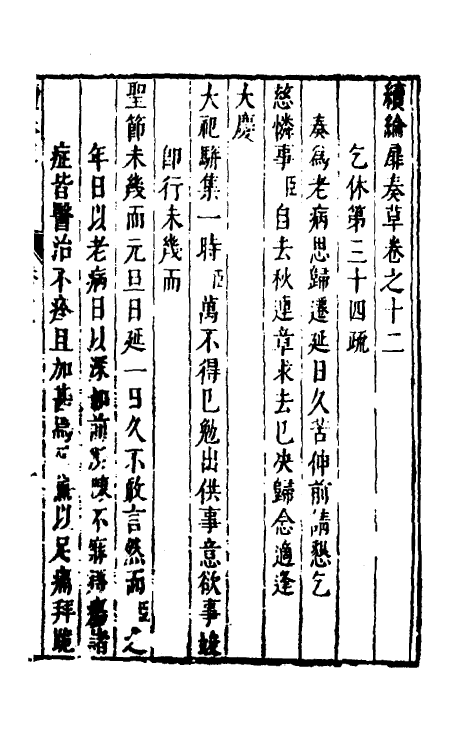 續綸扉奏草卷之十二
乞休第三十四疏
奏爲老病思歸遷延日久苦伸前請懇乞
慈憐事臣自去秋連章求去已决歸念適逢
大慶
大祀駢集一時臣萬不得已勉出供事意欲事竣
卽行未幾而
聖節未幾而元旦日延一日久不敢言然而臣之
年日以老病日以深如前不寐諸
症皆醫治不痊且加甚焉以足痛拜跪